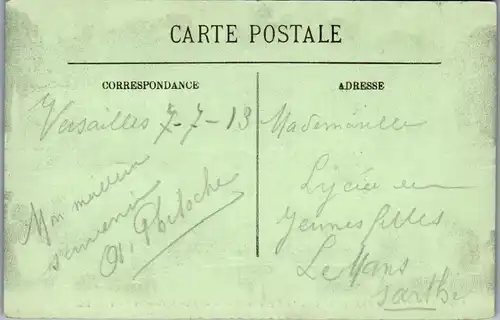 CARTE POSTALE
CORRESPONDANCE
Versailles 7-7-13
Mon meilleur
souvenir
ADRESSE
Mademoiselle
Lycée
Jeunes filles
Le Mans
Sarthe